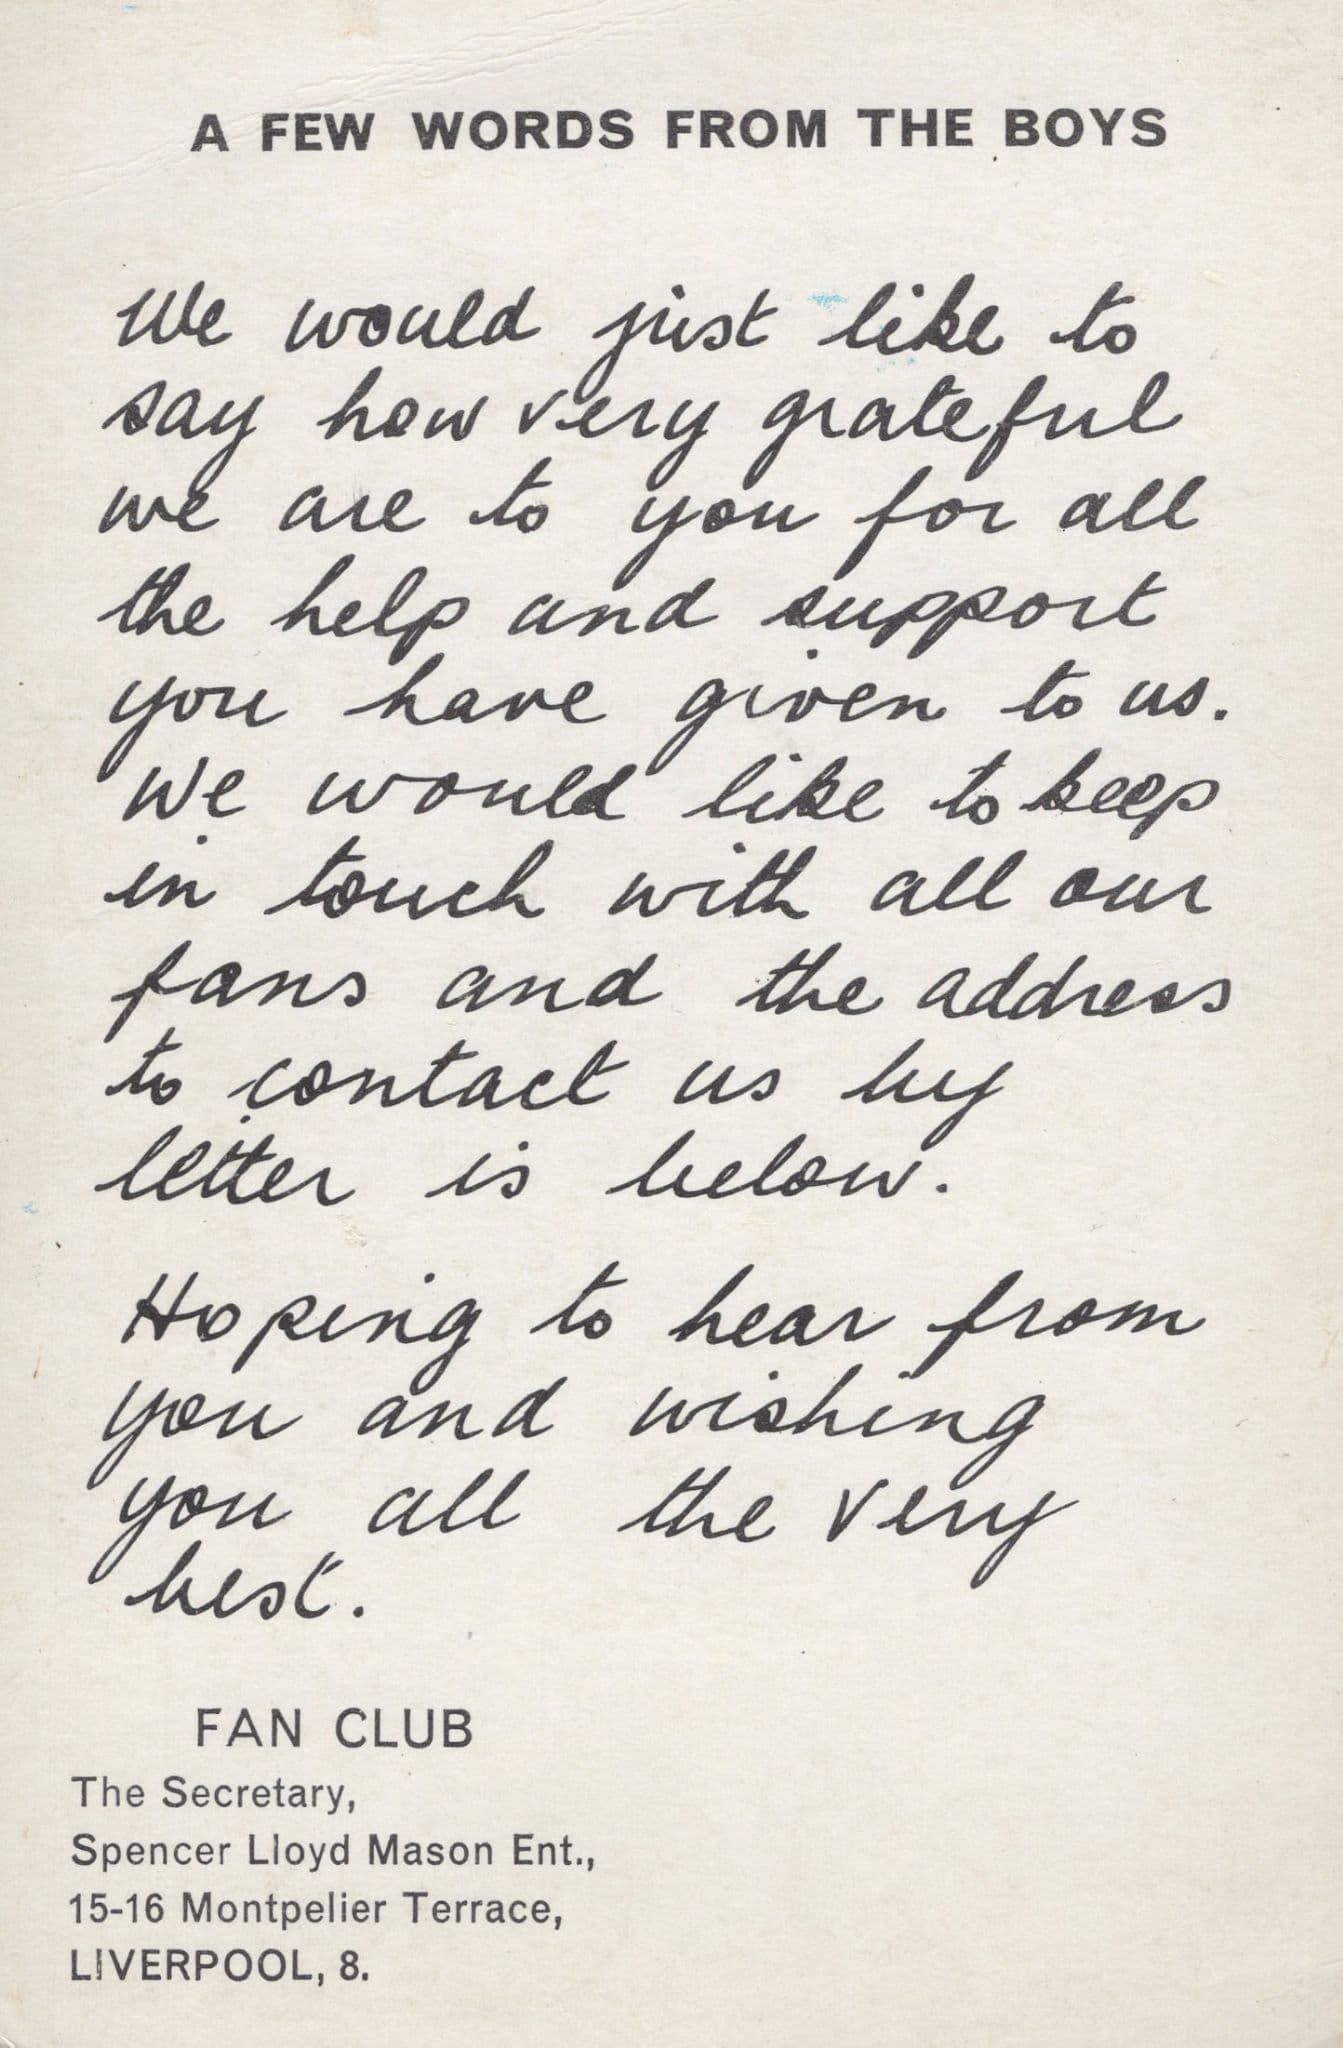 A FEW WORDS FROM THE BOYS
We would just like to
say how very grateful
we are to you for all
the help and support
you have given to us.
We would like to keep
in touch with all our
fans and the address
to contact us by
letter is below.
Hoping to hear from
you and wishing
you all the very
best.
FAN CLUB
The Secretary,
Spencer Lloyd Mason Ent.,
15-16 Montpelier Terrace,
LIVERPOOL, 8.